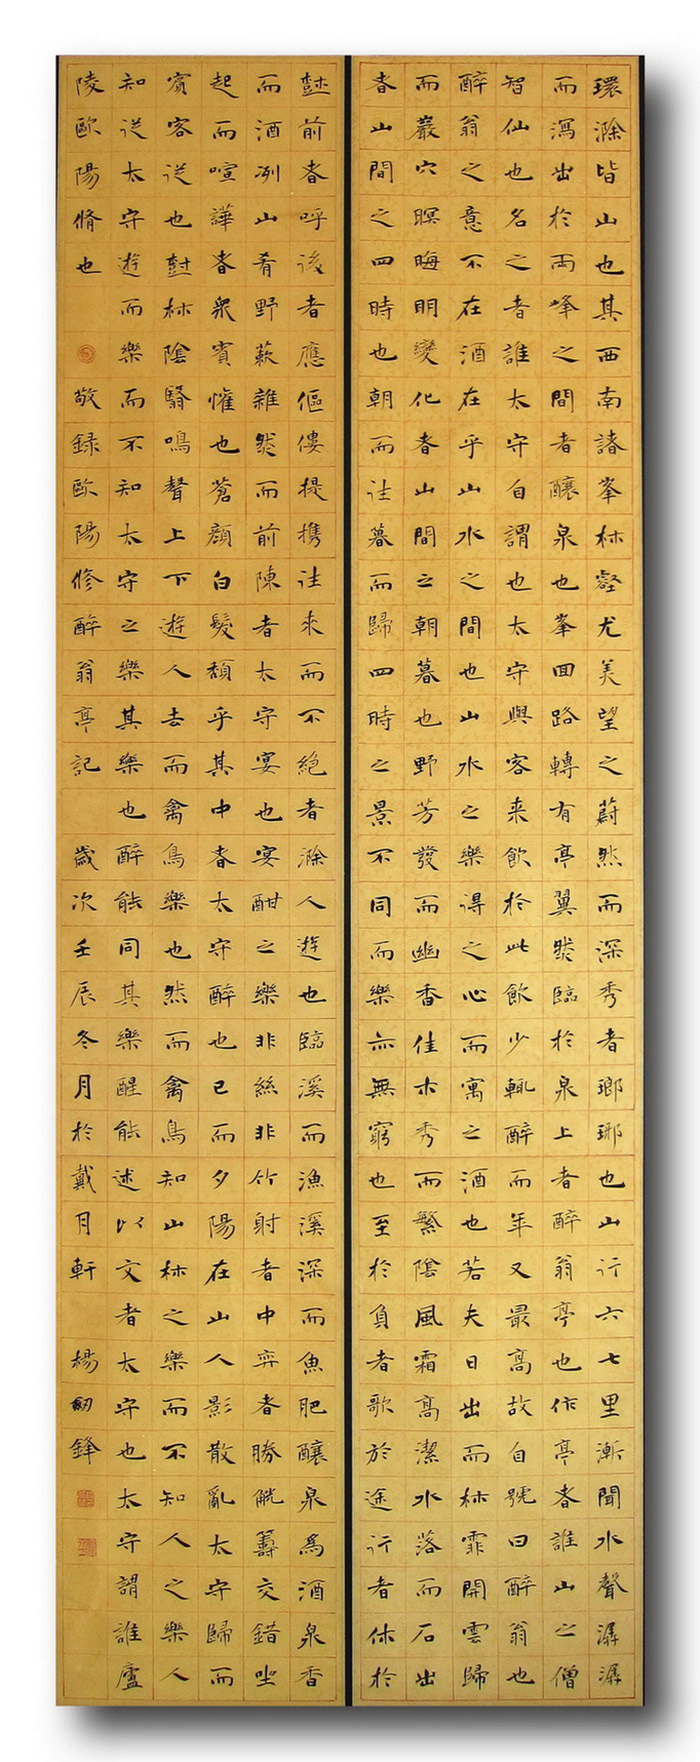 環滁皆山也其西南諸峯林壑尤美望之蔚然而深秀者瑯琊也山行六七里漸聞水聲潺潺
而瀉出於兩峰之間者釀泉也峯回路轉有亭翼然臨於泉上者醉翁亭也作亭者誰山之僧
智仙也名之者誰太守自謂也太守與客来飲於此飲少輒醉而年又最高故自號曰醉翁也
醉翁之意不在酒在乎山水之間也山水之樂得之心而寓之酒也若夫日出而林霏開雲歸
而巖穴暝晦明變化者山間之朝暮也野芳發而幽香佳木秀而繁陰風霜高潔水落而石出
者山間之四時也朝而往暮而歸四時之景不同而樂亦無窮也至於負者歌於途行者休於
樹前者呼後者應傴僂提攜往來而不絕者滁人遊也臨溪而漁溪深而魚肥釀泉為酒泉香
而酒冽山肴野蔌雜然而前陳者太守宴也宴酣之樂非絲非竹射者中弈者勝觥籌交錯坐
起而喧譁者眾賓懽也蒼顏白髮頹乎其中者太守醉也已而夕陽在山人影散亂太守歸而
賓客從也樹林陰翳鳴聲上下遊人去而禽鳥樂也然而禽鳥知山林之樂而不知人之樂人
知從太守遊而樂而不知太守之樂其樂也醉能同其樂醒能述以文者太守也太守謂誰廬
陵歐陽脩也 敬録歐陽修醉翁亭記 歲次壬辰冬月於戴月軒 楊劍鋒